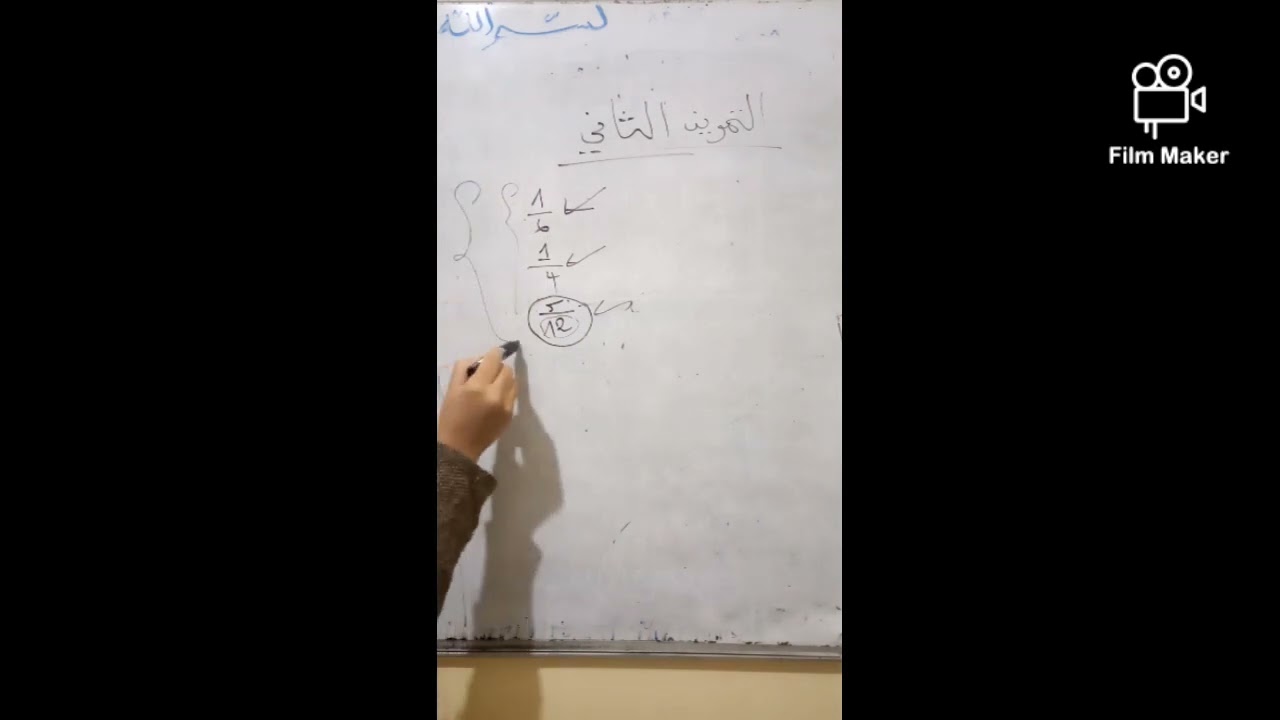 بسم الله
التمرين الثاني
1/6
1/4
5/12
Film Maker